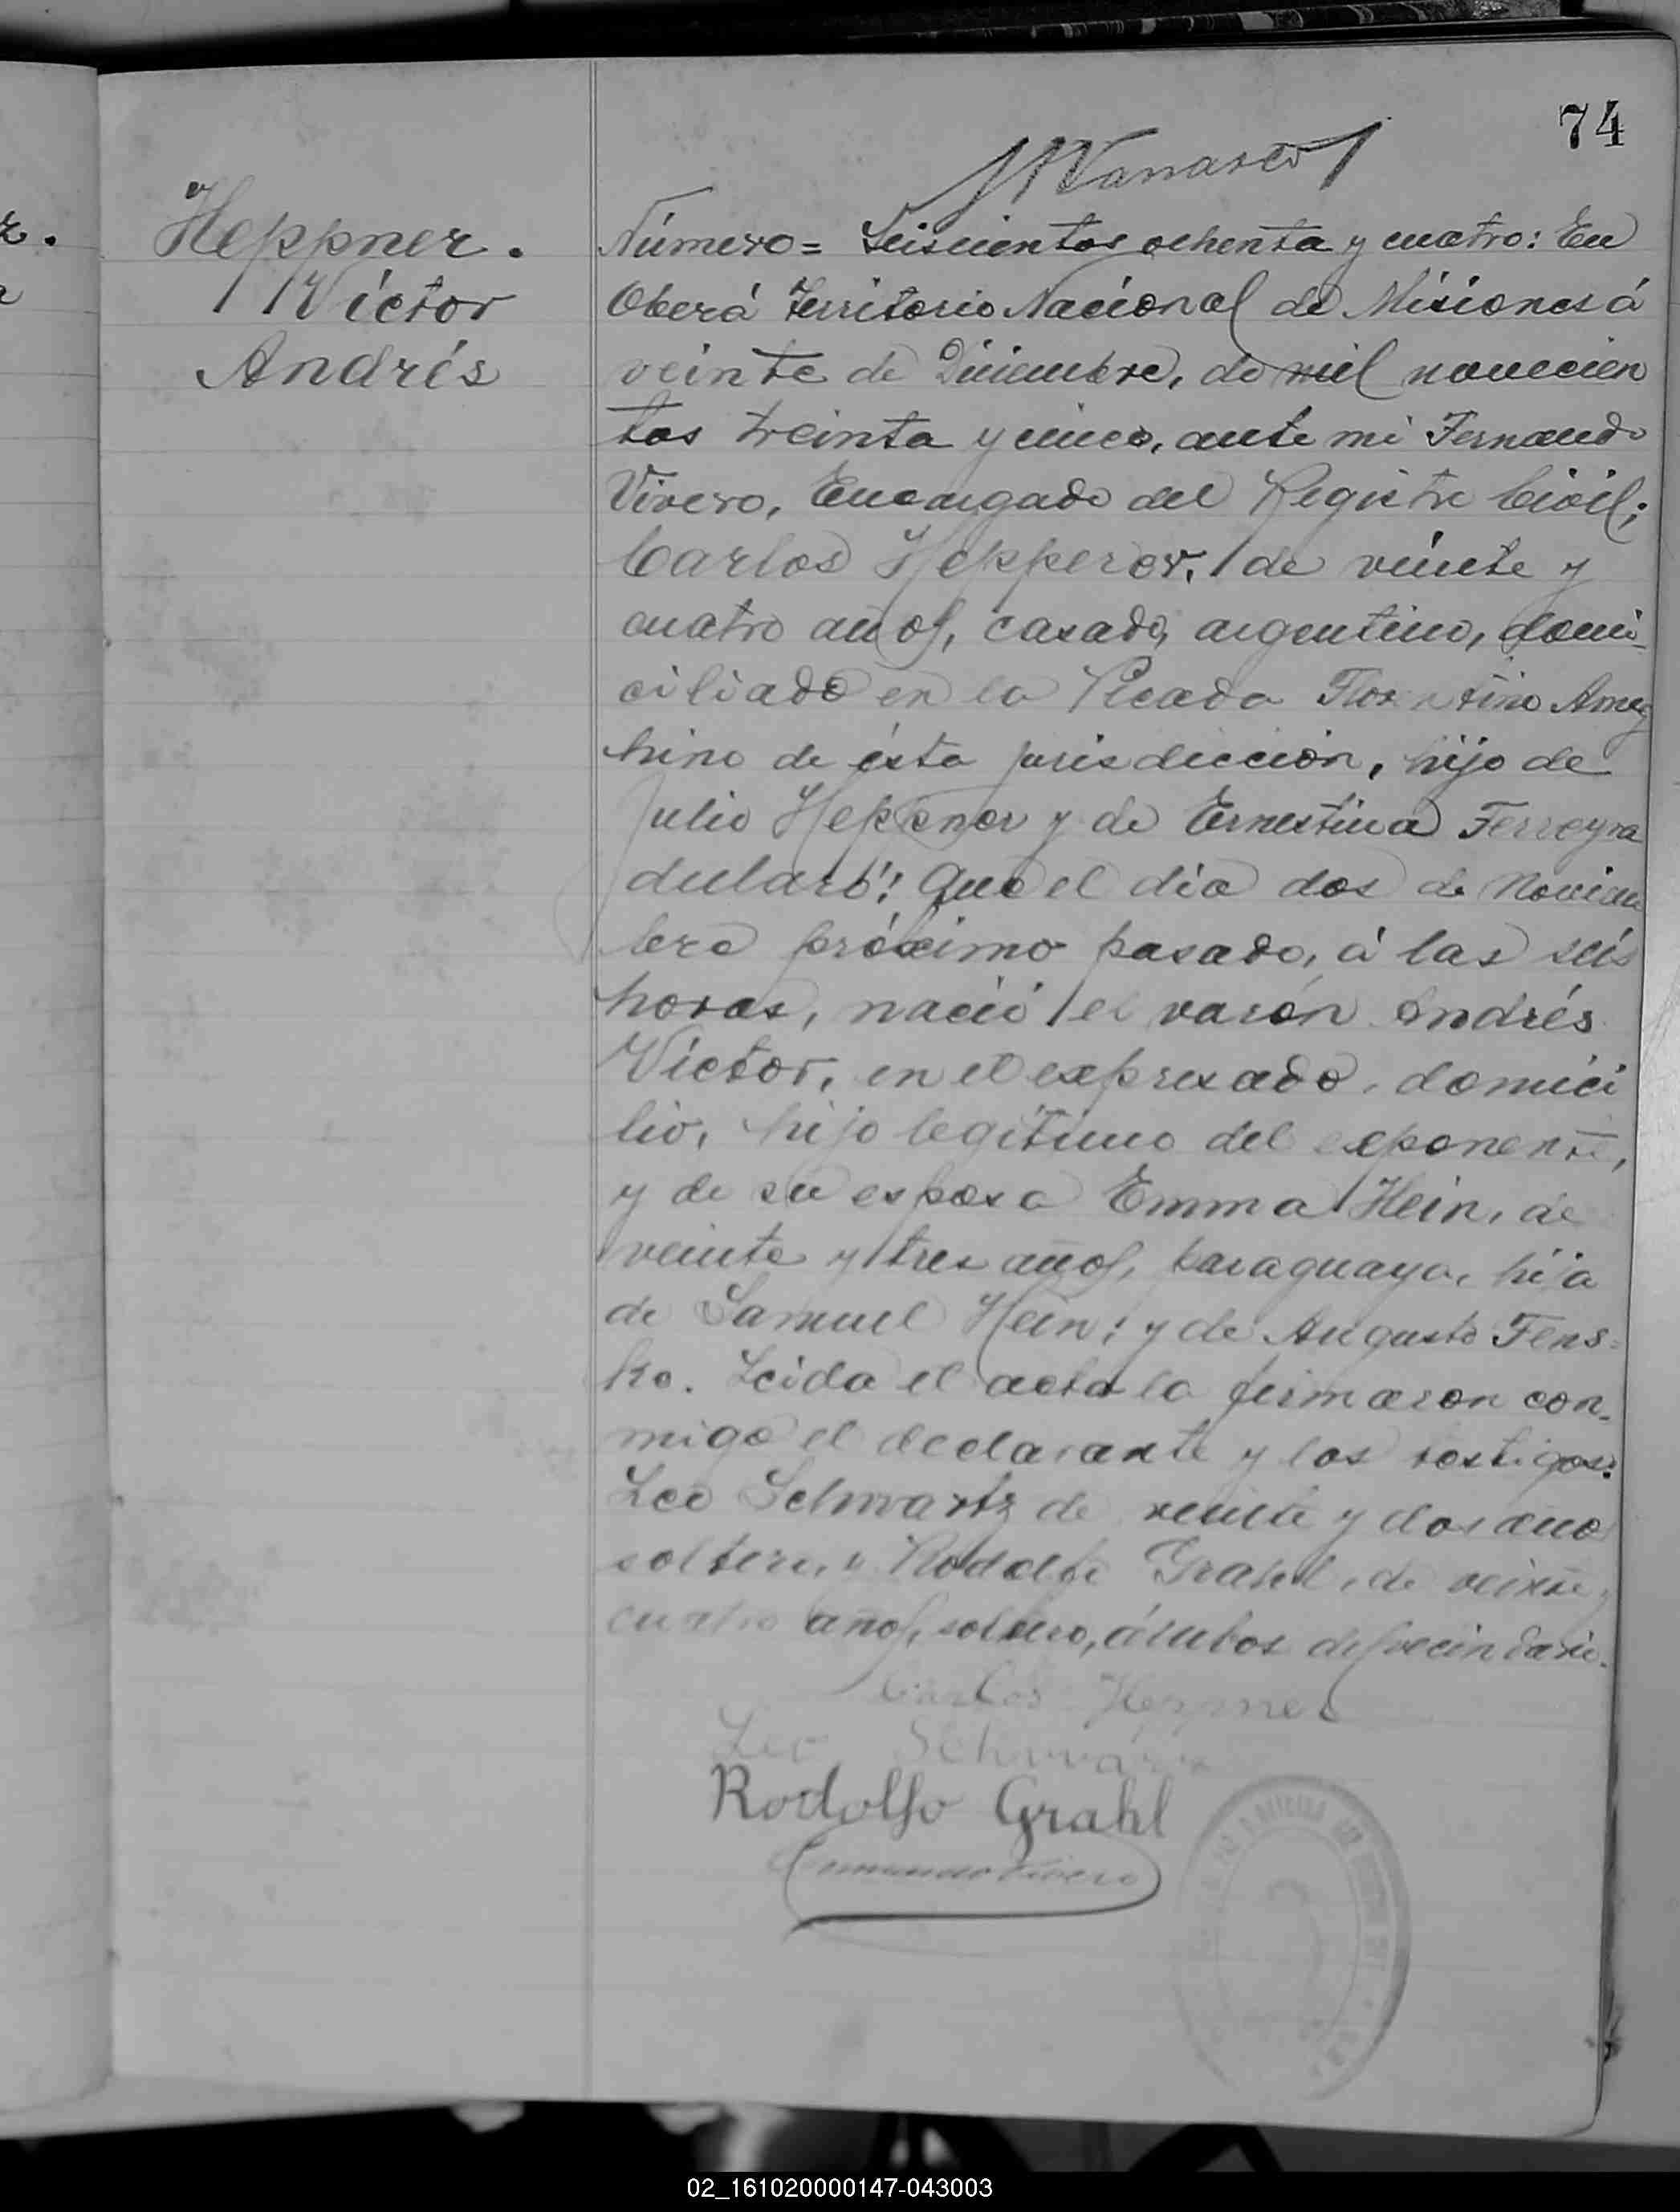 74
Heppner.
Víctor
Andrés
Número = Seiscientos ochenta y cuatro: En
Oberá Territorio Nacional de Misiones á
veinte de Diciembre, de mil novecien
tos treinta y cinco, ante mi Fernando
Vivero, Encargado del Registro Civil;
Carlos Hepperer, de veinte y
cuatro años, casado, argentino, domi-
ciliado en la Picada Florentino Ameg
hino de ésta jurisdicción, hijo de
Julio Heppner y de Ernestina Ferreyra
declaró: Que el día dos de Noviem
bre próximo pasado, á las seis
horas, nació el varón Andrés
Víctor, en el expresado domici
lio, hijo legítimo del exponente,
y de su esposa Emma Hein, de
veinte y tres años, paraguaya, hija
de Samuel Hein; y de Augusta Fens-
ke. Leida el acta la firmaron con-
migo el declarante y los testigos:
Leo Schwartz de veinte y dos años
soltero, y Rodolfo Grahl, de veinte y
cuatro años, soltero, ámbos del vecindario.
Carlos Heppner
Leo
Rodolfo Grahl
Fernando Vivero
02_161020000147-043003